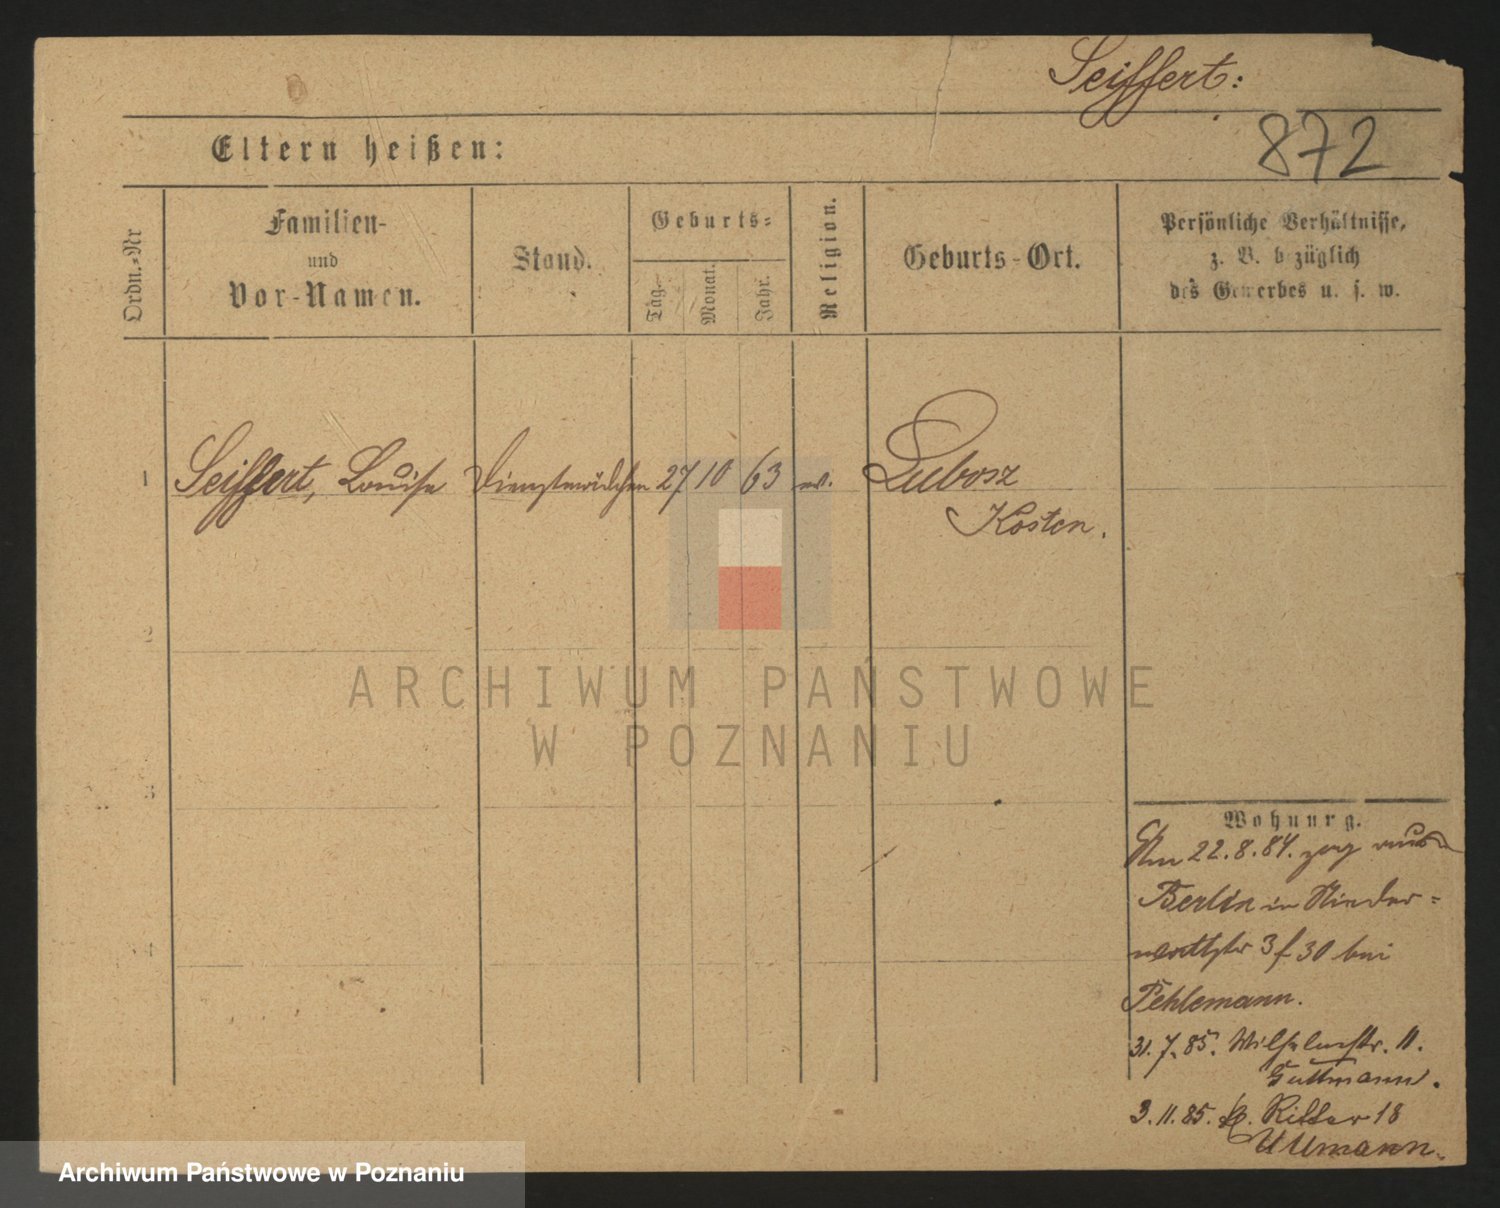 Seiffert:
Eltern heißen:
872
Ordn.-Nr
Familien-
und
Vor-Namen.
Stand.
Geburts-
Tag.
Monat.
Jahr.
Religion.
Geburts-Ort.
Persönliche Verhältnisse,
z. B. bezüglich
des Gewerbes u. s. w.
1 Seiffert, Louise Dienstmädchen 27 10 63 ev. Lubosz
Kosten.
2
3
4
ARCHIWUM PAŃSTWOWE
W POZNANIU
Wohnung.
Am 22.8.84. zog aus
Berlin in
3 f 30 bei
Pehlemann.
31.7.85. Wilhelmstr. 11.
Guttmann.
3.11.85. Ritter 18
Ullmann.
Archiwum Państwowe w Poznaniu